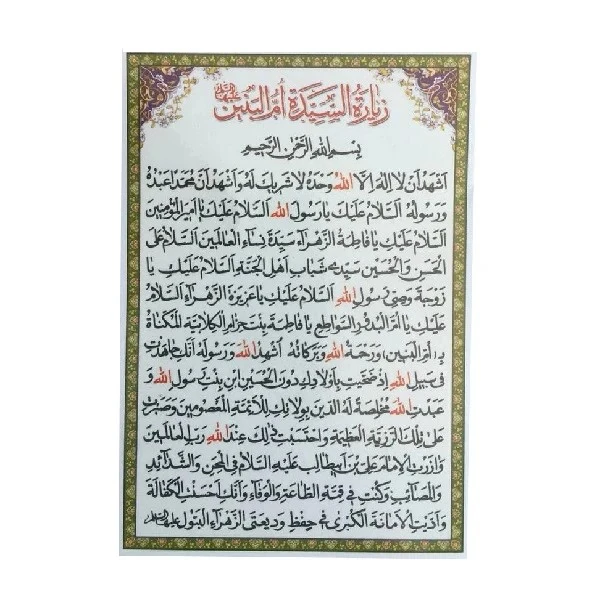 زيارة السيدة أم البنين عليها السلام
بسم الله الرحمن الرحيم
اشهد ان لا اله الا الله وحده لا شريك له واشهد ان محمدا عبده
ورسوله السلام عليك يا رسول الله السلام عليك يا امير المؤمنين
السلام عليك يا فاطمة الزهراء سيدة نساء العالمين السلام على
الحسن والحسين سيدي شباب اهل الجنة السلام عليك يا
زوجة وصي رسول الله السلام عليك يا عزيزة الزهراء السلام
عليك يا ام البدور السواطع يا فاطمة بنت حزام الكلابية المكناة
بـ (ام البنين) ورحمة الله وبركاته اشهد الله ورسوله انك جاهدت
في سبيل الله اذ ضحيت باولادك دون الحسين ابن بنت رسول الله و
عبدت الله مخلصة له الدين بولائك للأئمة المعصومين وصبرت
على تلك الرزية العظيمة واحتسبت ذلك عند الله رب العالمين
وازرت الامام علي بن ابيطالب عليه السلام في المحن والشدائد
والمصائب وكنت في قمة الطاعة والوفاء وانك احسنت الكفالة
واديت الامانة الكبرى في حفظ وديعتي الزهراء البتول عليها السلام